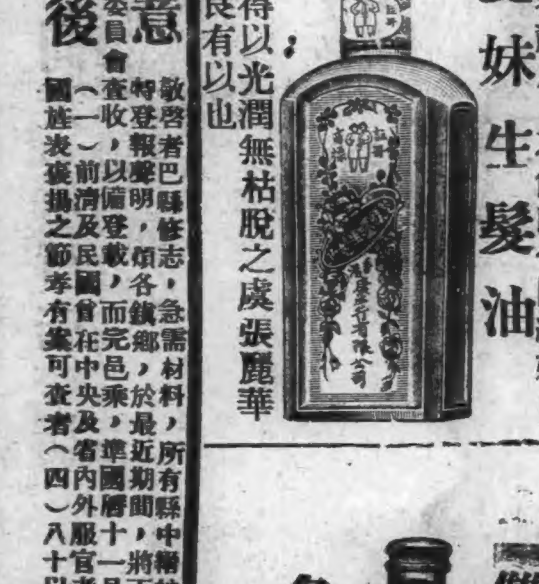 妹生髮油
得以光潤無枯脫之虞張麗華
良有以也
廣生行有限公司
意
敬啓者巴縣修志，急需材料，所有縣中
特登報聲明，煩各鎮鄉，於最近期間，將
委員會查收，以備登載，而完邑乘，準國曆十一月
後
（一）前清及民國曾在中央及省內外服官者
國旌表褒揚之節孝有案可查者（四）八十以